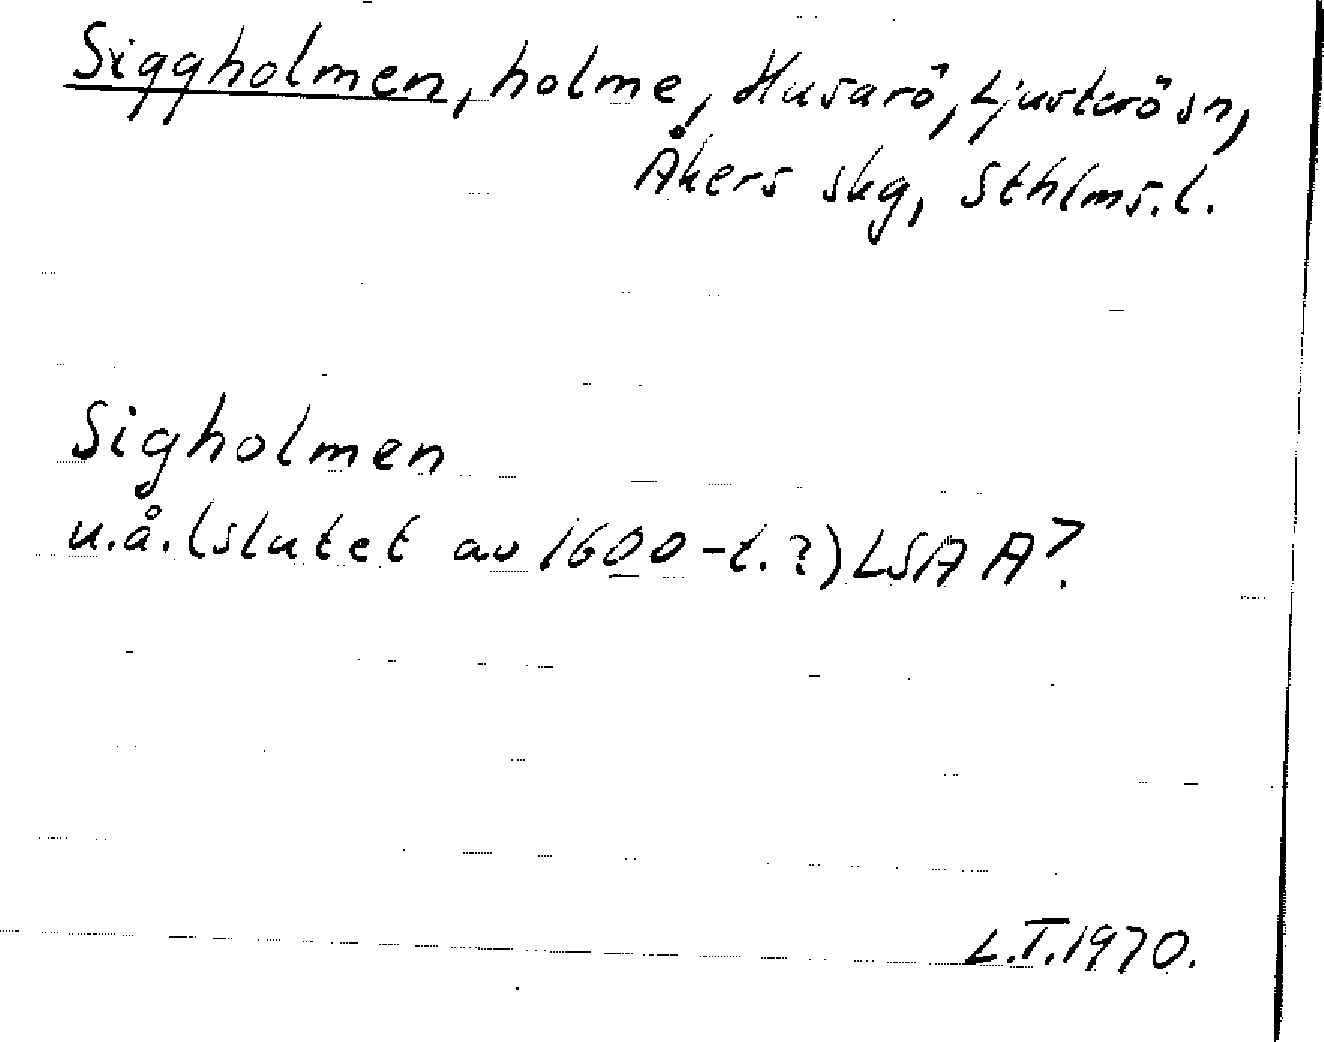 Siggholmen, holme, Husarö, Ljusterö sn,
Åkers skg, Sthlms. l.
Sigholmen
u.å. (slutet av 1600-t.?) LSA A7.
L.I. 1970.